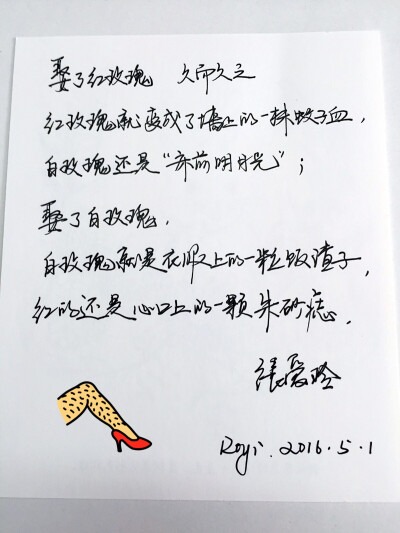 娶了红玫瑰 久而久之
红玫瑰就变成了墙上的一抹蚊子血，
白玫瑰还是“床前明月光”；
娶了白玫瑰，
白玫瑰就是衣服上的一粒饭渣子，
红的还是心口上的一颗朱砂痣．
张爱玲
Royi. 2016.5.1